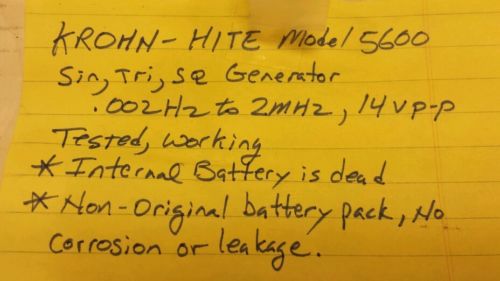 KROHN-HITE Model 5600
Sin, Tri, SQ Generator
.002Hz to 2mHz, 14v p-p
Tested, working
* Internal Battery is dead
* Non-Original battery pack, No
corrosion or leakage.